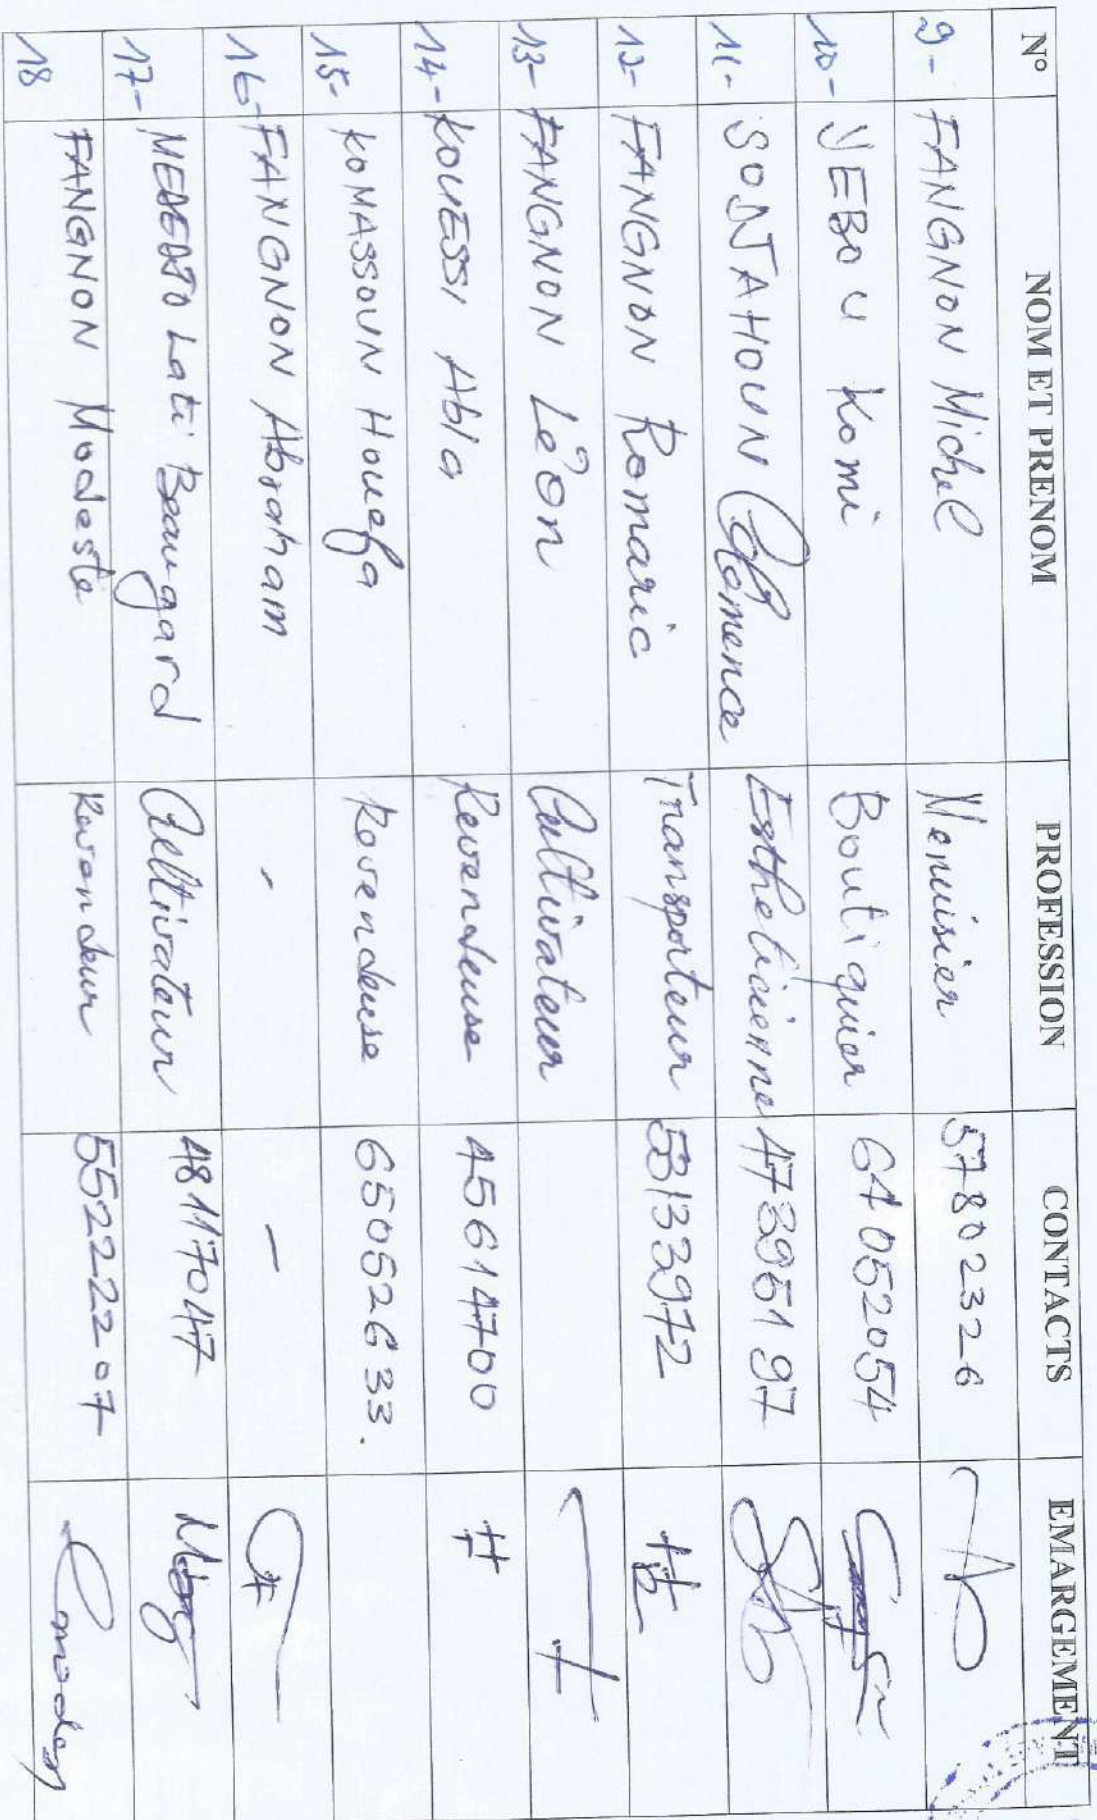 N° NOM ET PRENOM PROFESSION CONTACTS EMARGEMENT
9- FANGNON Michel Menuisier 57802326
10- YEBOU Komi Boutiquier 64052054
11- SODJAHOUN Esthéticienne 473951 97
12- FANGNON Romaric Transporteur 53133972
13- FANGNON Léon Cultivateur
14- KOUESSI Abla Revendeuse 45614700
15- KOMASSOUN Houefa Revendeuse 65052633.
16- FANGNON Abraham - -
17- Lati Beaugard Cultivateur 48117047
18 FANGNON Modeste Revendeur 55222207